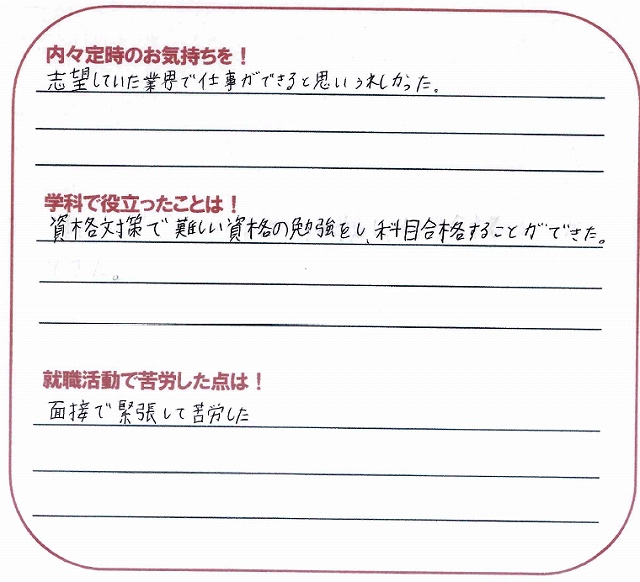 内々定時のお気持ちを！
志望していた業界で仕事ができると思いうれしかった。
学科で役立ったことは！
資格対策で難しい資格の勉強をし、科目合格することができた。
就職活動で苦労した点は！
面接で緊張して苦労した